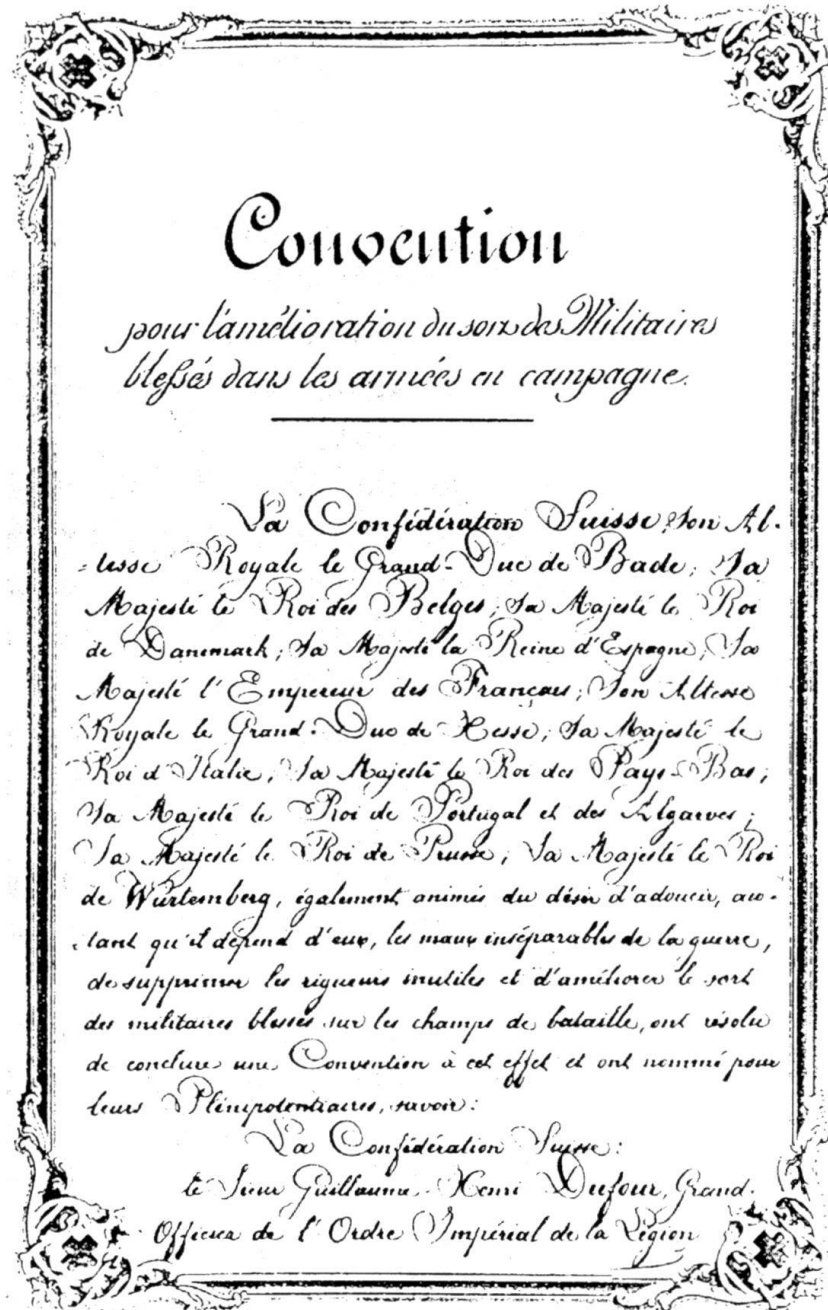 Convention
pour l'amélioration du sort des Militaires
blessés dans les armées en campagne.
La Confédération Suisse; Son Al-
-tesse Royale le Grand-Duc de Bade; Sa
Majesté le Roi des Belges; Sa Majesté le Roi
de Danemark; Sa Majesté la Reine d'Espagne; Sa
Majesté l'Empereur des Français; Son Altesse
Royale le Grand-Duc de Hesse; Sa Majesté le
Roi d'Italie; Sa Majesté le Roi des Pays-Bas;
Sa Majesté le Roi de Portugal et des Algarves;
Sa Majesté le Roi de Prusse; Sa Majesté le Roi
de Würtemberg, également animés du désir d'adoucir, au-
-tant qu'il dépend d'eux, les maux inséparables de la guerre,
de supprimer les rigueurs inutiles et d'améliorer le sort
des militaires blessés sur les champs de bataille, ont résolu
de conclure une Convention à cet effet et ont nommé pour
leurs Plénipotentiaires, savoir:
La Confédération Suisse:
le Sieur Guillaume-Henri Dufour, Grand-
Officier de l'Ordre Impérial de la Légion